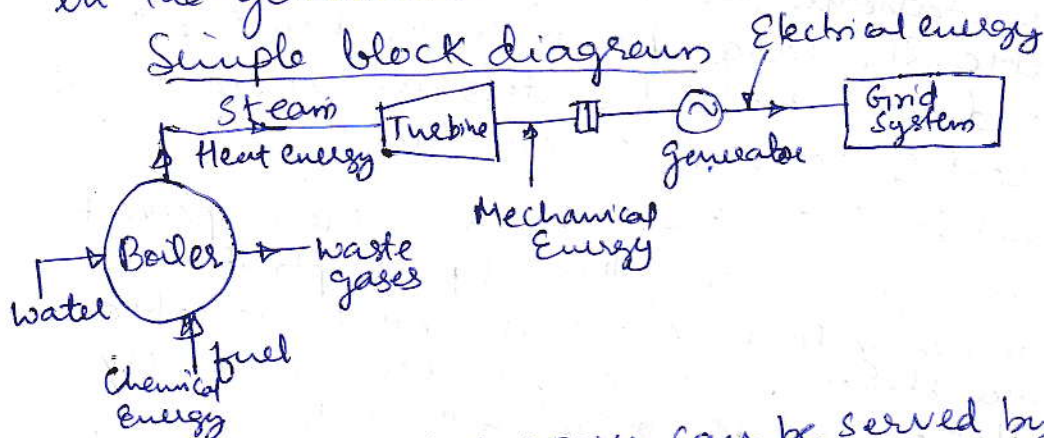 in the
Simple block diagram
Electrical energy
Steam
Heat energy
Turbine
Generator
Grid
System
Mechanical
Energy
Boiler
Waste
gases
Water
fuel
Chemical
Energy
can be served by